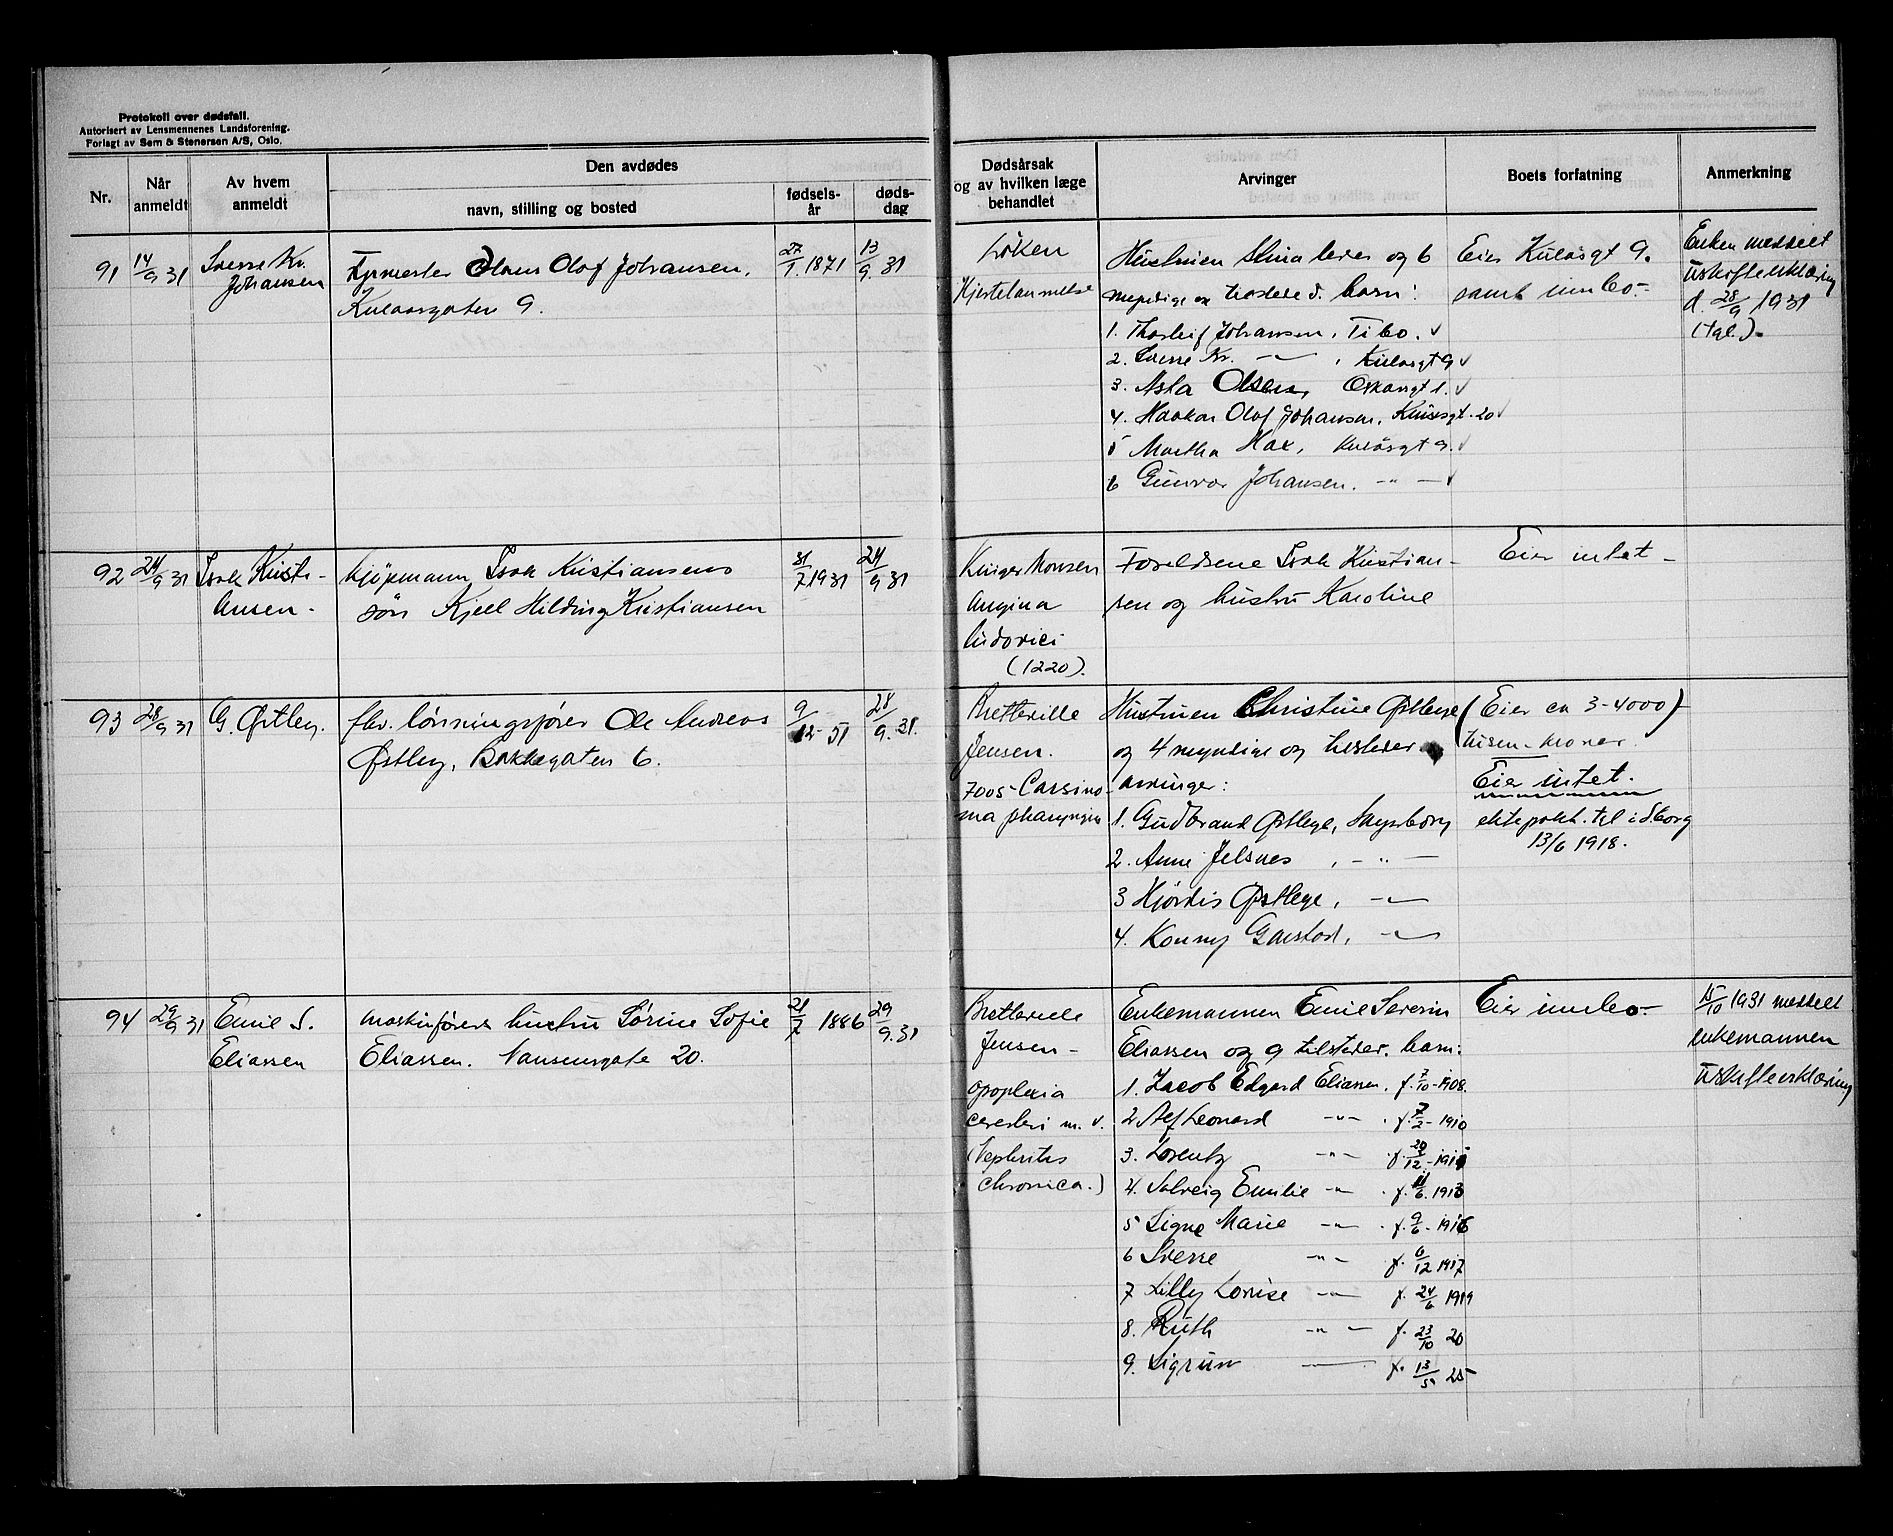 Protokoll over dødsfall.
Autorisert av Lensmennenes Landsforening.
Forlagt av Sem & Stenersen A/S, Oslo.
Nr.
Når anmeldt
Av hvem anmeldt
Den avdødes
navn, stilling og bosted
fødsels-år
døds-dag
Dødsårsak og av hvilken læge behandlet
Arvinger
Boets forfatning
Anmerkning
91 14/9 31
Sverre Kr.
Johansen
Fyrmester Hans Olaf Johansen,
Kulåsgaten 9.
27/1. 1871
13/9. 31
Løken
Hjertelammelse
Hustruen Stina lever og 6
myndige og tilstede d. barn:
1. Thorleif Johansen, Tibo. ✓
2. Sverre Kr. -„- , Kulåsgt 9 ✓
3. Asta Olsen, Oskarsgt 1. ✓
4. Haakon Olaf Johansen, Kulåsgt. 20 ✓
5 Martha Hax, Kulåsgt 9. ✓
6 Gunvor Johansen. -„- ✓
Eier Kulåsgt 9.
samt innbo.-
Enken meddelt
uskifteerklæring
d. 28/9 1931
(tgl.).
92 24/9 31
Isak Kristi-
ansen -
kjøpmann Isak Kristiansens
søn Kjell Hilding Kristiansen
31/7 1931
24/9 31
Kinger Monsen
Angina
ludovici
(1220).
Foreldrene Isak Kristian-
sen og hustru Karoline
Eier intet -
93 28/9 31
G. Østbye.
fhv. lønningsfører Ole Andreas
Østbye, Bakkegaten 6.
9/12- 51
28/9. 31
Bretteville
Jensen.
7005- Carsino-
ma pharyngis
Hustruen Christine Østbye
og 4 myndige og tilsteder
arvinger:
1. Gudbrand Østbye, Sarpsborg
2. Anne Jelsnes , -„-
3 Hjørdis Østbye, -„-
4. Konny Garstad, -„-
(Eier ca 3-4000)
tusen kroner.
Eier intet.
ektepakt. tgl. i Sborg
13/6 1918.
94 29/9 31
Emil S.
Eliassen
maskinførers hustru Sørine Sofie
Eliassen. Nansensgate 20.
21/7 1886
29/9. 31
Bretteville
Jensen -
apoplexia
cerebri m. v.
(Nephritis
chronica.)
Enkemannen Emil Severin
Eliassen og 9 tilsteder. barn:
1. Jacob Edgard Eliassen. f. 7/10-1908.
2 Alf Leonard -„- . f. 7/2- 1910
3. Lorentz -„- f. 20/12-1911
4. Solveig Emilie -„- . f. 11/6. 1913
5 Signe Marie -„- . f. 9/6 - 1916
6 Sverre -„- f. 6/12 1917
7 Lilly Lovise -„- f. 24/6 1919
8. Ruth -„- f. 23/10 20
9. Sigrun f. 13/5 25
Eier innbo.-
15/10 1931 meddelt
enkemannen
uskifteerklæring